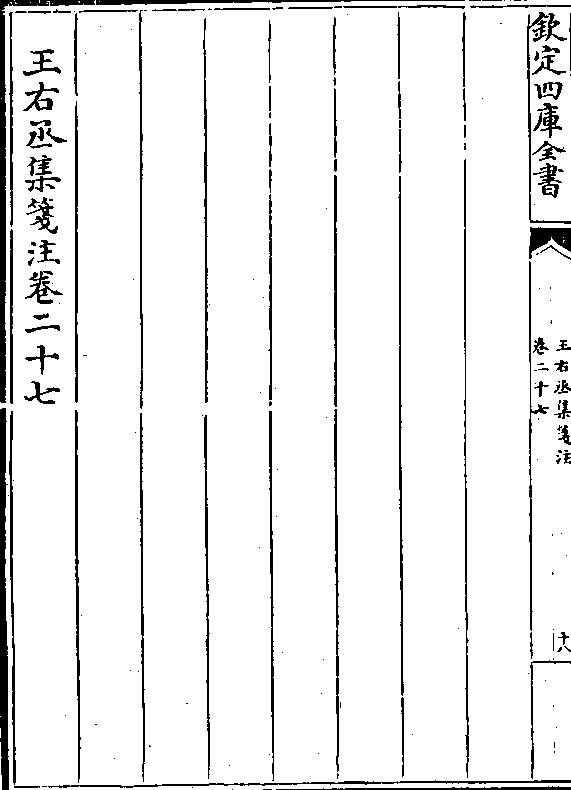 欽定四庫全書
王右丞集箋注
卷二十七
十八
王右丞集箋注卷二十七